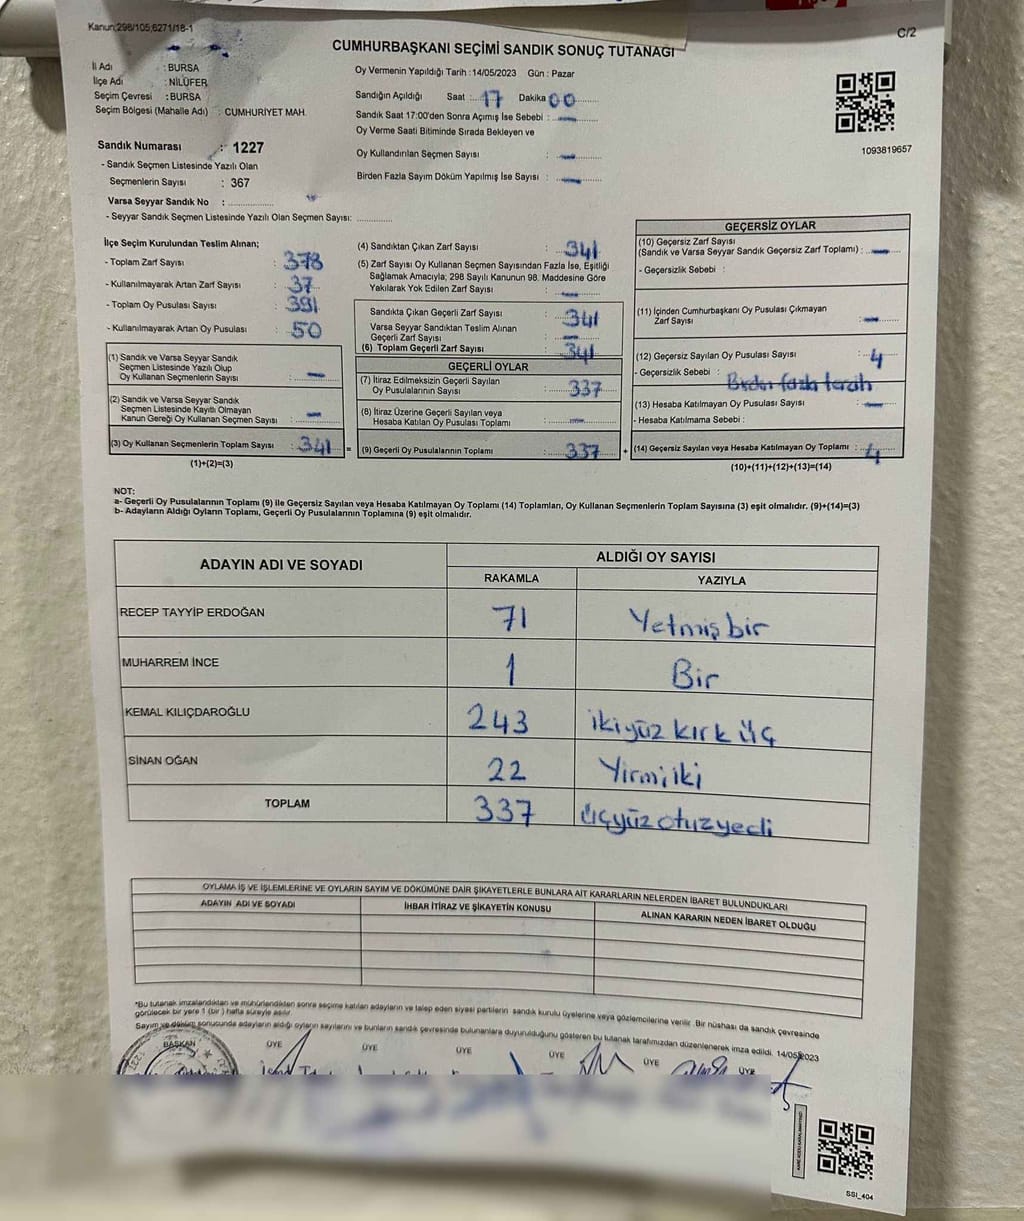 Kanun;298/105;6271/18-1
C/2
CUMHURBAŞKANI SEÇİMİ SANDIK SONUÇ TUTANAĞI
İl Adı : BURSA
İlçe Adı : NİLÜFER
Seçim Çevresi : BURSA
Seçim Bölgesi (Mahalle Adı) : CUMHURİYET MAH.
Oy Vermenin Yapıldığı Tarih :14/05/2023 Gün : Pazar
Sandığın Açıldığı Saat :..17 Dakika 00
Sandık Saat 17:00'den Sonra Açılmış İse Sebebi : —
Oy Verme Saati Bitiminde Sırada Bekleyen ve
Oy Kullandırılan Seçmen Sayısı : —
Birden Fazla Sayım Döküm Yapılmış İse Sayısı : —
1093819657
Sandık Numarası : 1227
- Sandık Seçmen Listesinde Yazılı Olan
Seçmenlerin Sayısı : 367
Varsa Seyyar Sandık No :
- Seyyar Sandık Seçmen Listesinde Yazılı Olan Seçmen Sayısı:
İlçe Seçim Kurulundan Teslim Alınan;
- Toplam Zarf Sayısı : 378
- Kullanılmayarak Artan Zarf Sayısı : 37
- Toplam Oy Pusulası Sayısı : 391
- Kullanılmayarak Artan Oy Pusulası : 50
(1) Sandık ve Varsa Seyyar Sandık
Seçmen Listesinde Yazılı Olup
Oy Kullanan Seçmenlerin Sayısı : —
(2) Sandık ve Varsa Seyyar Sandık
Seçmen Listesinde Kayıtlı Olmayan
Kanun Gereği Oy Kullanan Seçmen Sayısı : —
(3) Oy Kullanan Seçmenlerin Toplam Sayısı : 341 =
(1)+(2)=(3)
(4) Sandıktan Çıkan Zarf Sayısı : 341
(5) Zarf Sayısı Oy Kullanan Seçmen Sayısından Fazla İse, Eşitliği
Sağlamak Amacıyla; 298 Sayılı Kanunun 98. Maddesine Göre
Yakılarak Yok Edilen Zarf Sayısı : —
Sandıkta Çıkan Geçerli Zarf Sayısı : 341
Varsa Seyyar Sandıktan Teslim Alınan
Geçerli Zarf Sayısı : —
(6) Toplam Geçerli Zarf Sayısı : 341
GEÇERLİ OYLAR
(7) İtiraz Edilmeksizin Geçerli Sayılan
Oy Pusulalarının Sayısı : 337
(8) İtiraz Üzerine Geçerli Sayılan veya
Hesaba Katılan Oy Pusulası Toplamı : —
(9) Geçerli Oy Pusulalarının Toplamı : 337 +
GEÇERSİZ OYLAR
(10) Geçersiz Zarf Sayısı
(Sandık ve Varsa Seyyar Sandık Geçersiz Zarf Toplamı) : —
- Geçersizlik Sebebi :
(11) İçinden Cumhurbaşkanı Oy Pusulası Çıkmayan
Zarf Sayısı : —
(12) Geçersiz Sayılan Oy Pusulası Sayısı : 4
- Geçersizlik Sebebi : Birden fazla tercih
(13) Hesaba Katılmayan Oy Pusulası Sayısı : —
- Hesaba Katılmama Sebebi :
(14) Geçersiz Sayılan veya Hesaba Katılmayan Oy Toplamı : 4
(10)+(11)+(12)+(13)=(14)
NOT:
a- Geçerli Oy Pusulalarının Toplamı (9) ile Geçersiz Sayılan veya Hesaba Katılmayan Oy Toplamı (14) Toplamları, Oy Kullanan Seçmenlerin Toplam Sayısına (3) eşit olmalıdır. (9)+(14)=(3)
b- Adayların Aldığı Oyların Toplamı, Geçerli Oy Pusulalarının Toplamına (9) eşit olmalıdır.
ADAYIN ADI VE SOYADI
ALDIĞI OY SAYISI
RAKAMLA YAZIYLA
RECEP TAYYİP ERDOĞAN 71 Yetmiş bir
MUHARREM İNCE 1 Bir
KEMAL KILIÇDAROĞLU 243 ikiyüz kırk üç
SİNAN OĞAN 22 Yirmi iki
TOPLAM 337 üçyüzotuzyedi
OYLAMA İŞ VE İŞLEMLERİNE VE OYLARIN SAYIM VE DÖKÜMÜNE DAİR ŞİKAYETLERLE BUNLARA AİT KARARLARIN NELERDEN İBARET BULUNDUKLARI
ADAYIN ADI VE SOYADI İHBAR İTİRAZ VE ŞİKAYETİN KONUSU ALINAN KARARIN NEDEN İBARET OLDUĞU
*Bu tutanak imzalandıktan ve mühürlendikten sonra seçime katılan adayların ve talep eden siyasi partilerin sandık kurulu üyelerine veya gözlemcilerine verilir. Bir nüshası da sandık çevresinde
görülecek bir yere 1 (bir) hafta süreyle asılır.
Sayım ve döküm sonucunda adayların aldığı oyların sayılarını ve bunların sandık çevresinde bulunanlara duyurulduğunu gösteren bu tutanak tarafımızdan düzenlenerek imza edildi. 14/05/2023
BAŞKAN ÜYE ÜYE ÜYE ÜYE ÜYE ÜYE
SSI_404